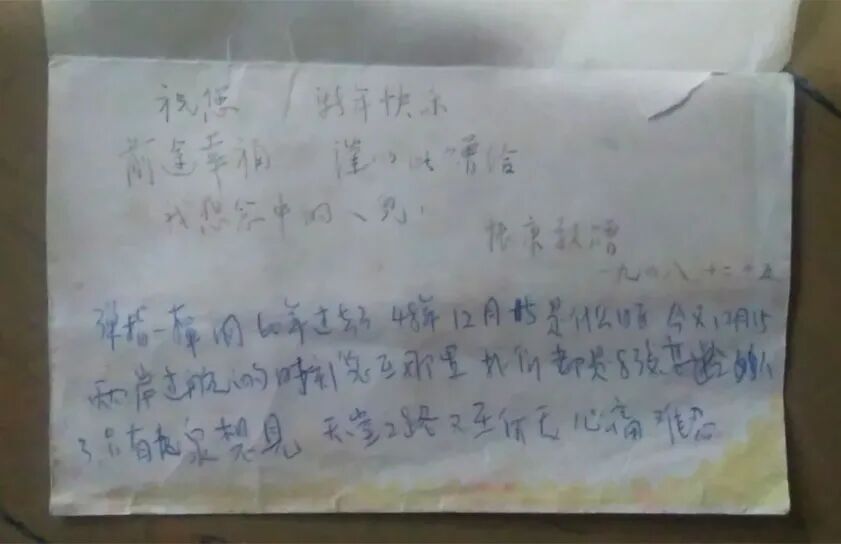 祝您 新年快乐
前途幸福 谨以此赠给
我想念中的人儿！
振京敬赠
一九四八 十二 十五
弹指一挥间60年过去了 48年12月15是什么日子 今又12月15
两岸通航的时刻您在那里 我们都是8张高龄的人
了只有九泉想见 天堂之路又在何方 心痛难忍